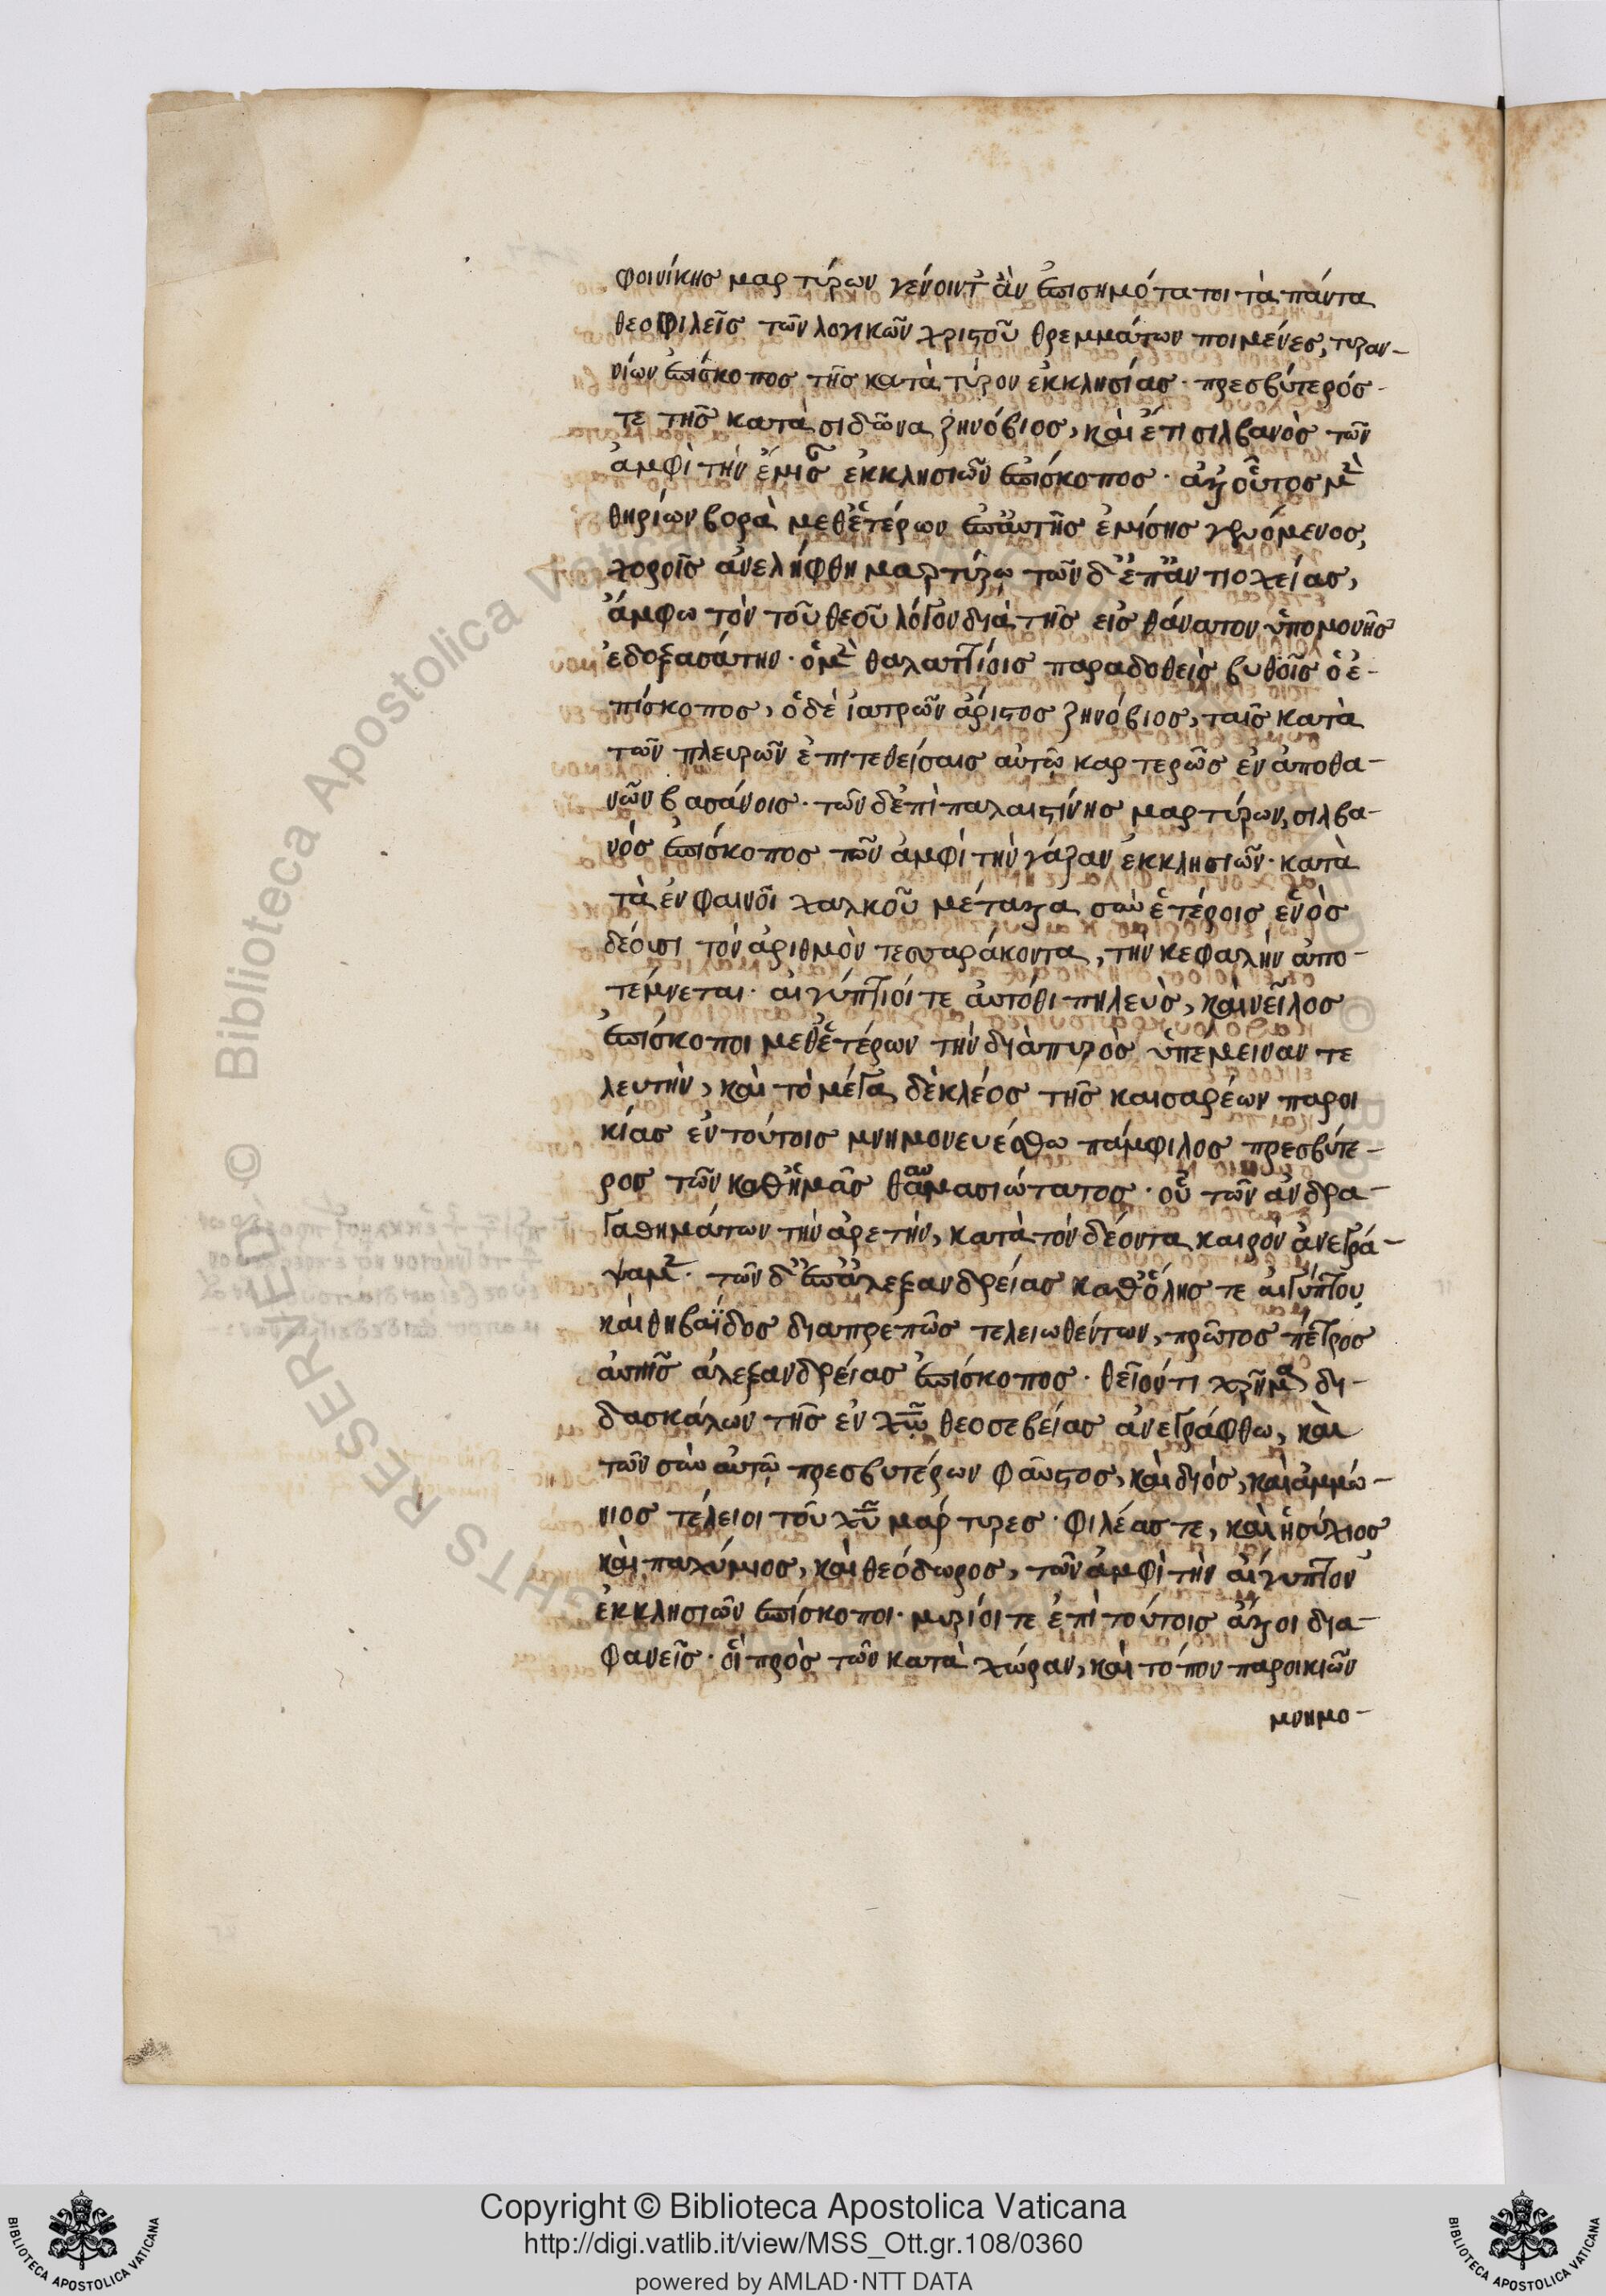 φοινίκης μαρτύρων γένοιντ ἂν ἐπισημότατοι τὰ πάντα
θεοφιλεῖς τῶν λογικῶν χριστοῦ θρεμμάτων ποιμένες, τυραν-
νίων ἐπίσκοπος τῆς κατὰ τύρον ἐκκλησίας· πρεσβύτερός
τε τῆς κατὰ σιδῶνα ζηνόβιος, καὶ ἔτι σιλβανὸς τῶν
ἀμφὶ τὴν ἔμισ ἐκκλησιῶν ἐπίσκοπος· ἀλλ οὗτος μὲν
θηρίων βορὰ μεθ ἑτέρων ἐπ αυτῆς ἐμίσης γενόμενος,
χοροῖς ἀνελήφθη μαρτύρων τῶν δ ἐπ ἀντιοχείας,
ἄμφω τὸν τοῦ θεοῦ λόγον διὰ τῆς εἰς θάνατον ὑπομονῆς
ἐδοξασάτην· ὁ μὲν θαλαττίοις παραδοθεὶς βυθοῖς ὁ ἐ-
πίσκοπος, ὁ δὲ ἰατρῶν ἄριστος ζηνόβιος, ταῖς κατὰ
τῶν πλευρῶν ἐπιτεθείσαις αὐτῷ καρτερῶς ἐναποθα-
νὼν βασάνοις· τῶν δ ἐπὶ παλαιστίνης μαρτύρων, σιλβα-
νὸς ἐπίσκοπος τῶν ἀμφὶ τὴν γάζαν ἐκκλησιῶν· κατὰ
τὰ ἐν φαινοῖ χαλκοῦ μέταλλα σὺν ἑτέροις ἑνὸς
δέουσι τὸν ἀριθμὸν τεσσαράκοντα, τὴν κεφαλὴν ἀπο-
τέμνεται· αἰγύπτιοί τε αὐτόθι πηλεὺς, καὶ νεῖλος
ἐπίσκοποι μεθ ἑτέρων τὴν διὰ πυρὸς ὑπέμειναν τε
λευτὴν, καὶ τὸ μέγα δὲ κλέος τῆς καισαρέων παροι
κίας ἐν τούτοις μνημονευέσθω πάμφιλος πρεσβύτε-
ρος τῶν καθ ἡμᾶς θαυμασιώτατος· οὗ τῶν ἀνδρα-
γαθημάτων τὴν ἀρετὴν, κατὰ τὸν δέοντα καιρὸν ἀνεγρά-
ψαμεν· τῶν δ ἐπ ἀλεξανδρείας καθ ὅλης τε αἰγύπτου
καὶ θηβαΐδος διαπρεπῶς τελειωθέντων, πρῶτος πέτρος
αὐτῆς ἀλεξανδρείας ἐπίσκοπος· θεῖόν τι χρῆμα δι-
δασκάλων τῆς ἐν χῷ θεοσεβείας ἀνεγράφθω, καὶ
τῶν σὺν αὐτῷ πρεσβυτέρων φαῦστος, καὶ διὸς, καὶ ἀμμώ-
νιος τέλειοι τοῦ χῦ μάρτυρες· φιλέας τε, καὶ ἡσύχιος
καὶ παχύμιος, καὶ θεόδωρος, τῶν ἀμφὶ τὴν αἴγυπτον
ἐκκλησιῶν ἐπίσκοποι· μυρίοι τε ἐπὶ τούτοις ἄλλοι δια-
φανεῖς· οἳ πρὸς τῶν κατὰ χώραν, καὶ τόπον παροικιῶν
μνημο-
Copyright © Biblioteca Apostolica Vaticana
http://digi.vatlib.it/view/MSS_Ott.gr.108/0360
powered by AMLAD·NTT DATA